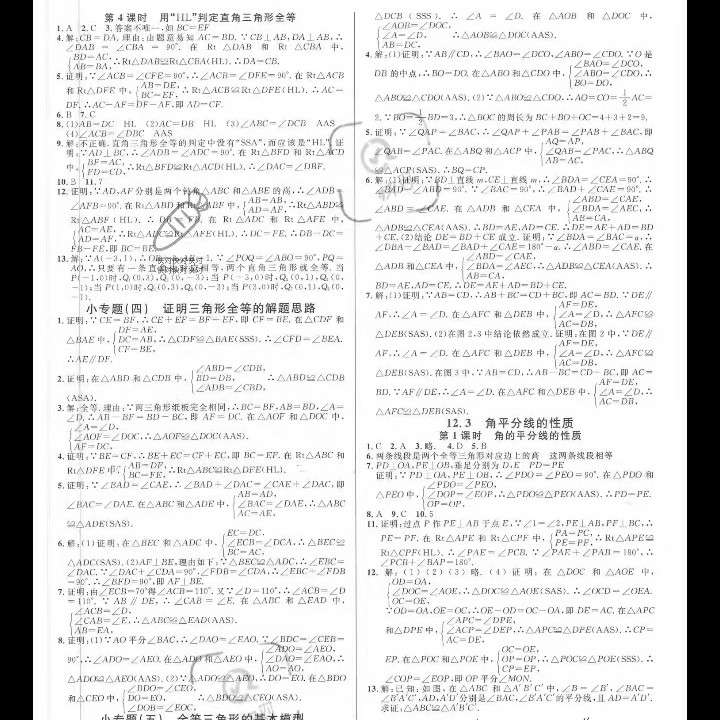 第4课时 用“HL”判定直角三角形全等
1. A 2. C 3. 答案不唯一,如 BC=EF
4. 解:CB=DA. 理由:由题意易知 AC=BD. ∵CB⊥AB,DA⊥AB,∴
∠DAB = ∠CBA = 90°. 在 Rt△DAB 和 Rt△CBA 中,
BD=AC,
AB=BA,
∴Rt△DAB≌Rt△CBA(HL). ∴DA=CB.
5. 证明:∵∠ACB=∠CFE=90°,∴∠ACB=∠DFE=90°. 在 Rt△ACB
和 Rt△DFE 中,
AB=DE,
BC=EF,
∴Rt△ACB≌Rt△DFE(HL). ∴AC=
DF. ∴AC-AF=DF-AF,即 AD=CF.
6. B 7. C
8. (1)AB=DC HL (2)AC=DB HL (3)∠ABC=∠DCB AAS
(4)∠ACB=∠DBC AAS
9. 解:不正确. 直角三角形全等的判定中没有“SSA”,而应该是“HL”. 证
明:∵AD⊥BC,∴∠ADB=∠ADC=90°. 在 Rt△BFD 和 Rt△ACD
中,
BF=AC,
FD=CD,
∴Rt△BFD≌Rt△ACD(HL). ∴∠DAC=∠DBF.
10. B 11. 7
12. 证明:∵AD,AF 分别是两个钝角△ABC 和△ABE 的高,∴∠ADB=
∠AFB=90°. 在 Rt△ABD 和 Rt△ABF 中,
AB=AB,
AD=AF,
∴Rt△ABD≌
AC=AE,
AD=AF,
FB-FE,即 BC=BE.
小专题(四) 证明三角形全等的解题思路
1. 证明:∵CE=BF,∴CE+EF=BF+EF,即 CF=BE. 在△CDF 和
△BAE 中,
DF=AE,
DC=AB,
CF=BE,
∴△CDF≌△BAE(SSS). ∴∠CFD=∠BEA.
∴AE∥DF.
2. 证明:在△ABD 和△CDB 中,
∠ABD=∠CDB,
BD=DB,
∠ADB=∠CBD,
∴△ABD≌△CDB
(ASA).
3. 解:全等. 理由:∵两三角形纸板完全相同,∴BC=BF,AB=BD,∠A=
∠D. ∴AB-BF=BD-BC,即 AF=DC. 在△AOF 和△DOC 中,
∠A=∠D,
∠AOF=∠DOC,
AF=DC,
∴△AOF≌△DOC(AAS).
4. 证明:∵BE=CF,∴BE+EC=CF+EC,即 BC=EF. 在 Rt△ABC 和
Rt△DFE 中,
∴Rt△ABC≌Rt△DFE(HL).
5. 证明:∵∠BAD=∠CAE,∴∠BAD+∠DAC=∠CAE+∠DAC,即
∠BAC=∠DAE. 在△ABC 和△ADE 中,
AB=AD,
∠BAC=∠DAE,
AC=AE,
∴△ABC
≌△ADE(SAS).
6. 解:(1)证明:在△BEC 和△ADC 中,
EC=DC,
∠BCE=∠DCA,
BC=AC,
∴△BEC≌
△ADC(SAS). (2)AF⊥BE. 理由如下:∵△BEC≌△ADC,∴∠EBC=
∠DAC. ∵∠DAC+∠CDA=90°,∠FDB=∠CDA,∴∠EBC+∠FDB
=90°. ∴∠BFD=90°,即 AF⊥BE.
7. 证明:由∠ECB=70°得∠ACB=110°. 又∵∠D=110°,∴∠ACB=∠D
=110°. ∵AB∥DE,∴∠CAB=∠E. 在△ABC 和△EAD 中,
∠ACB=∠D,
∠CAB=∠E,
AB=EA,
∴△ABC≌△EAD(AAS).
8. 证明:(1)∵AO 平分∠BAC,∴∠DAO=∠EAO. ∵∠BDC=∠CEB=
90°,∴∠ADO=∠AEO. 在△ADO 和△AEO 中,
∠ADO=∠AEO,
∠DAO=∠EAO,
AO=AO,
∴
△ADO≌△AEO(AAS). (2)∵△ADO≌△AEO,∴DO=EO. 在△BDO
和△CEO 中,
∠BDO=∠CEO,
DO=EO,
∠DOB=∠EOC,
∴△BDO≌△CEO(ASA).
小专题(五) 全等三角形的基本模型
△DCB(SSS). ∴∠A=∠D. 在△AOB 和△DOC 中,
∠AOB=∠DOC,
∠A=∠D,
AB=DC,
∴△AOB≌△DOC(AAS).
4. 解:(1)证明:∵AB∥CD,∴∠BAO=∠DCO,∠ABO=∠CDO. ∵O 是
DB 的中点,∴BO=DO. 在△ABO 和△CDO 中,
∠BAO=∠DCO,
∠ABO=∠CDO,
BO=DO,
∴
△ABO≌△CDO(AAS). (2)∵△ABO≌△CDO,∴AO=CO=1/2 AC=
2. ∵BO=1/2 BD=3,∴△BOC 的周长为 BC+BO+OC=4+3+2=9.
5. 证明:∵∠QAP=∠BAC,∴∠QAP+∠PAB=∠PAB+∠BAC,即
∠QAB=∠PAC. 在△ABQ 和△ACP 中,
AQ=AP,
∠QAB=∠PAC,
AB=AC,
∴△ABQ
≌△ACP(SAS). ∴BQ=CP.
6. 解:(1)证明:∵BD⊥直线 m,CE⊥直线 m,∴∠BDA=∠CEA=90°. ∴
∠BAD+∠ABD=90°. ∵∠BAC=90°,∴∠BAD+∠CAE=90°. ∴
∠ABD=∠CAE. 在△ADB 和△CEA 中,
∠ABD=∠CAE,
∠BDA=∠AEC,
AB=CA,
∴
△ADB≌△CEA(AAS). ∴BD=AE,AD=CE. ∴DE=AE+AD=BD
+CE. (2)结论 DE=BD+CE 成立. 证明:∵∠BDA=∠BAC=α,∴
∠DBA+∠BAD=∠BAD+∠CAE=180°-α. ∴∠ABD=∠CAE. 在
△ADB 和△CEA 中,
∠ABD=∠CAE,
∠BDA=∠AEC,
AB=CA,
∴△ADB≌△CEA(AAS). ∴
BD=AE,AD=CE. ∴DE=AE+AD=BD+CE.
7. 解:(1)证明:∵AB=CD,∴AB+BC=CD+BC,即 AC=BD. ∵DE∥
AF,∴∠A=∠D. 在△AFC 和△DEB 中,
AF=DE,
∠A=∠D,
AC=DB,
∴△AFC≌
△DEB(SAS). (2)在图2、3中结论依然成立. 证明:在图2中,∵DE∥
AF,∴∠A=∠D. 在△AFC 和△DEB 中,
AF=DE,
∠A=∠D,
AC=DB,
∴△AFC≌
△DEB(SAS). 在图3中,∵AB=CD,∴AB-BC=CD-BC,即 AC=
BD. ∵AF∥DE,∴∠A=∠D. 在△AFC 和△DEB 中,
AF=DE,
∠A=∠D,
AC=DB,
∴△AFC≌△DEB(SAS).
12.3 角平分线的性质
第1课时 角的平分线的性质
1. C 2. A 3. 略. 4. D 5. B
6. 两条线段是两个全等三角形对应边上的高 这两条线段相等
7. PD⊥OA,PE⊥OB,垂足分别为 D、E PD=PE
证明:∵PD⊥OA,PE⊥OB,∴∠PDO=∠PEO=90°. 在△PDO 和
△PEO 中,
∠PDO=∠PEO,
∠DOP=∠EOP,
OP=OP,
∴△PDO≌△PEO(AAS). ∴PD=PE.
8. A 9. C 10. 5
11. 证明:过点 P 作 PE⊥AB 于点 E. ∵∠1=∠2,PE⊥AB,PF⊥BC,∴
PE=PF. 在 Rt△APE 和 Rt△CPF 中,
PA=PC,
PE=PF,
∴Rt△APE≌
Rt△CPF(HL). ∴∠PAE=∠PCB. ∵∠PAE+∠PAB=180°,∴
∠PCB+∠BAP=180°.
12. 解:(1)(2)(3)略. (4)证明:在△DOC 和△AOE 中,
OD=OA,
∠DOC=∠AOE,
OC=OE,
∴△DOC≌△AOE(SAS). ∴∠OCD=∠OEA.
∵OD=OA,OE=OC,∴OE-OD=OC-OA,即 DE=AC. 在△APC
和△DPE 中,
∠APC=∠DPE,
∠ACP=∠DEP,
AC=DE,
∴△APC≌△DPE(AAS). ∴CP=
EP. 在△POC 和△POE 中,
OC=OE,
OP=OP,
CP=EP,
∴△POC≌△POE(SSS). ∴
∠COP=∠EOP,即 OP 平分∠MON.
13. 解:已知:如图,在△ABC 和△A′B′C′中,∠B=∠B′,∠BAC=
∠B′A′C′,AD,A′D′分别是∠BAC,∠B′A′C′的平分线,且 AD=A′D′.
求证:△ABC≌△A′B′C′.